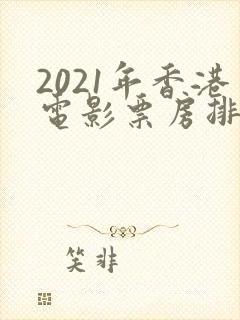 2021年香港
電影票房排
笑非